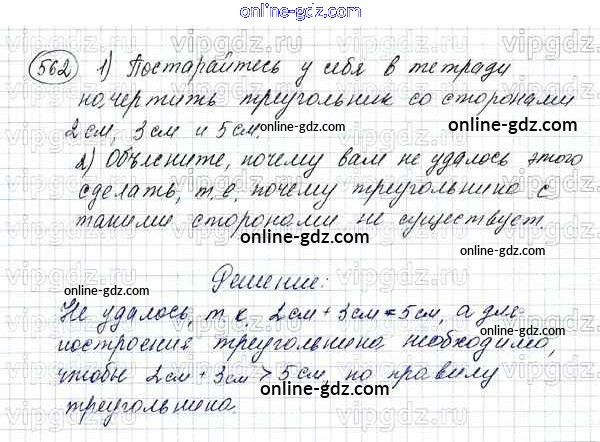 online-gdz.com
562 1) Постарайтесь у себя в тетради
начертить треугольник со сторонами
2 см, 3 см и 5 см. online-gdz.com
online-gdz.com
2) Объясните, почему вам не удалось этого
сделать, т.е. почему треугольника с
такими сторонами не существует.
online-gdz.com
Решение:
online-gdz.com
Не удалось, т.к. 2 см + 3 см = 5 см, а для
online-gdz.com
построения треугольника необходимо,
чтобы 2 см + 3 см > 5 см, по правилу
online-gdz.com online-gdz.com
треугольника.